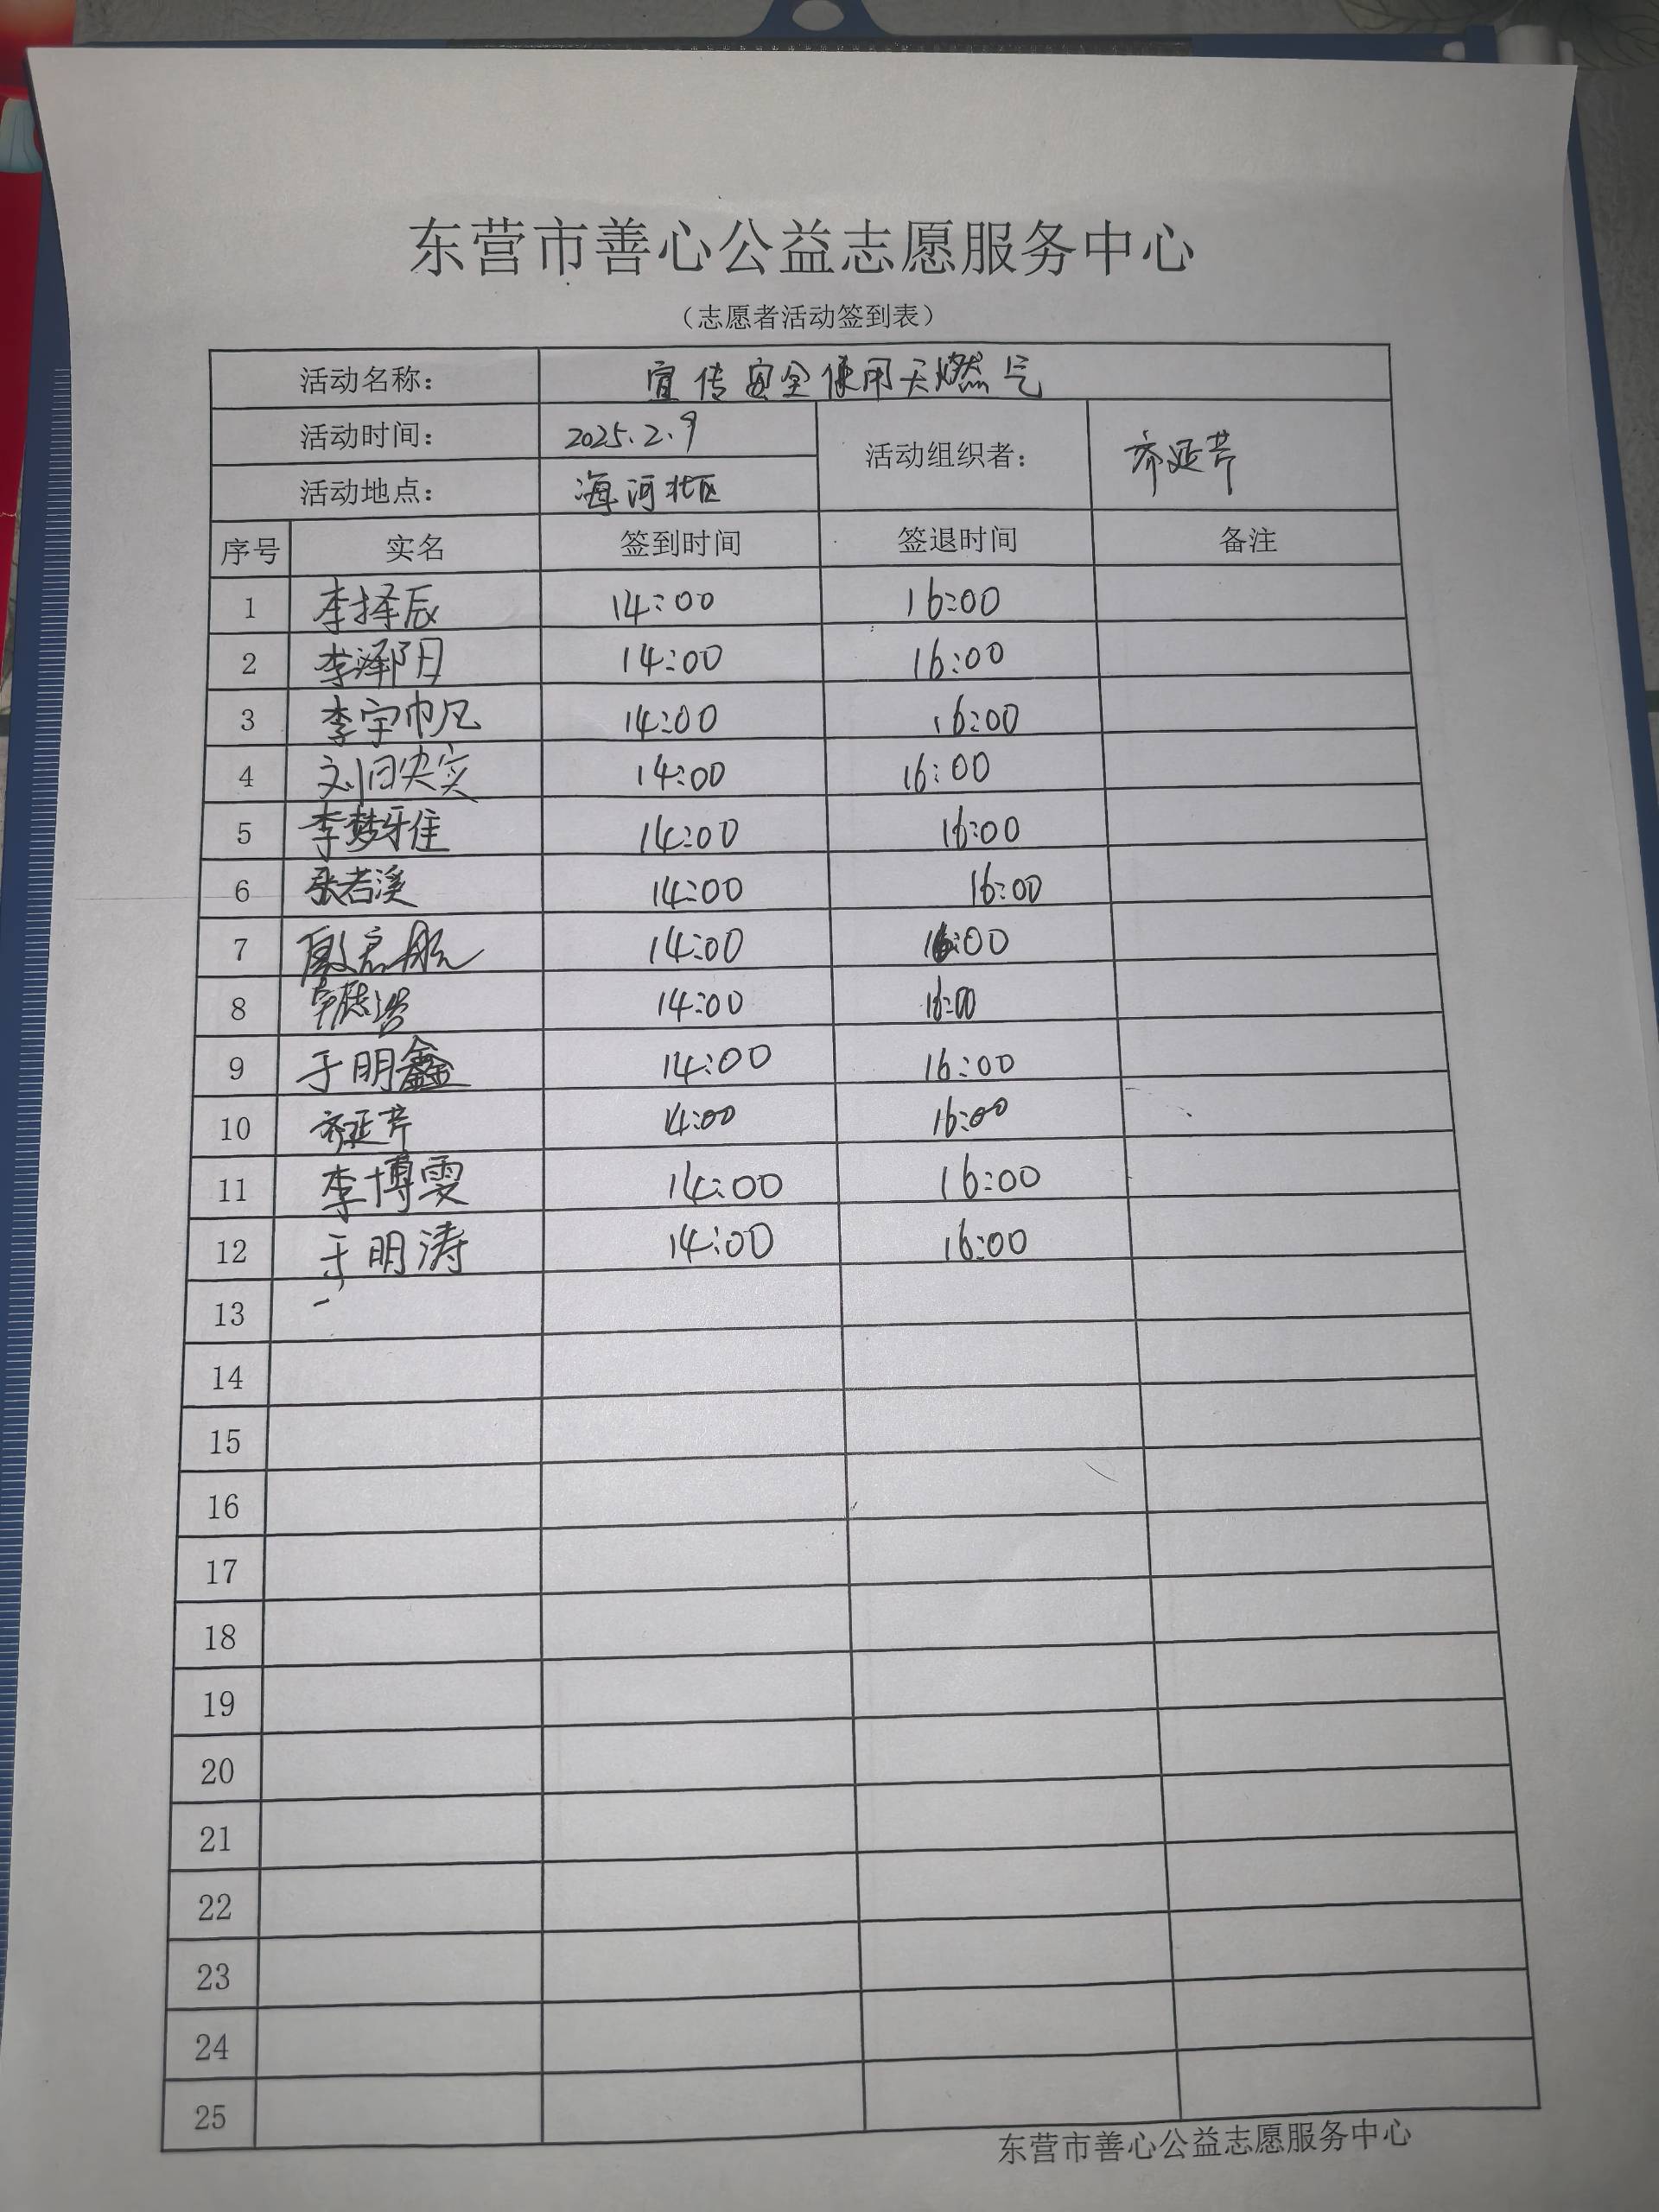 东营市善心公益志愿服务中心
（志愿者活动签到表）
活动名称： 宣传安全使用天燃气
活动时间： 2025.2.9 活动组织者： 齐延芹
活动地点： 海河北区
序号 实名 签到时间 签退时间 备注
1 李择辰 14:00 16:00
2 李泽阳 14:00 16:00
3 李宇帆 14:00 16:00
4 刘 14:00 16:00
5 李梦雅 14:00 16:00
6 张若溪 14:00 16:00
7 14:00 16:00
8 14:00 16:00
9 于明鑫 14:00 16:00
10 齐延芹 14:00 16:00
11 李博雯 14:00 16:00
12 于明涛 14:00 16:00
13
14
15
16
17
18
19
20
21
22
23
24
25
东营市善心公益志愿服务中心